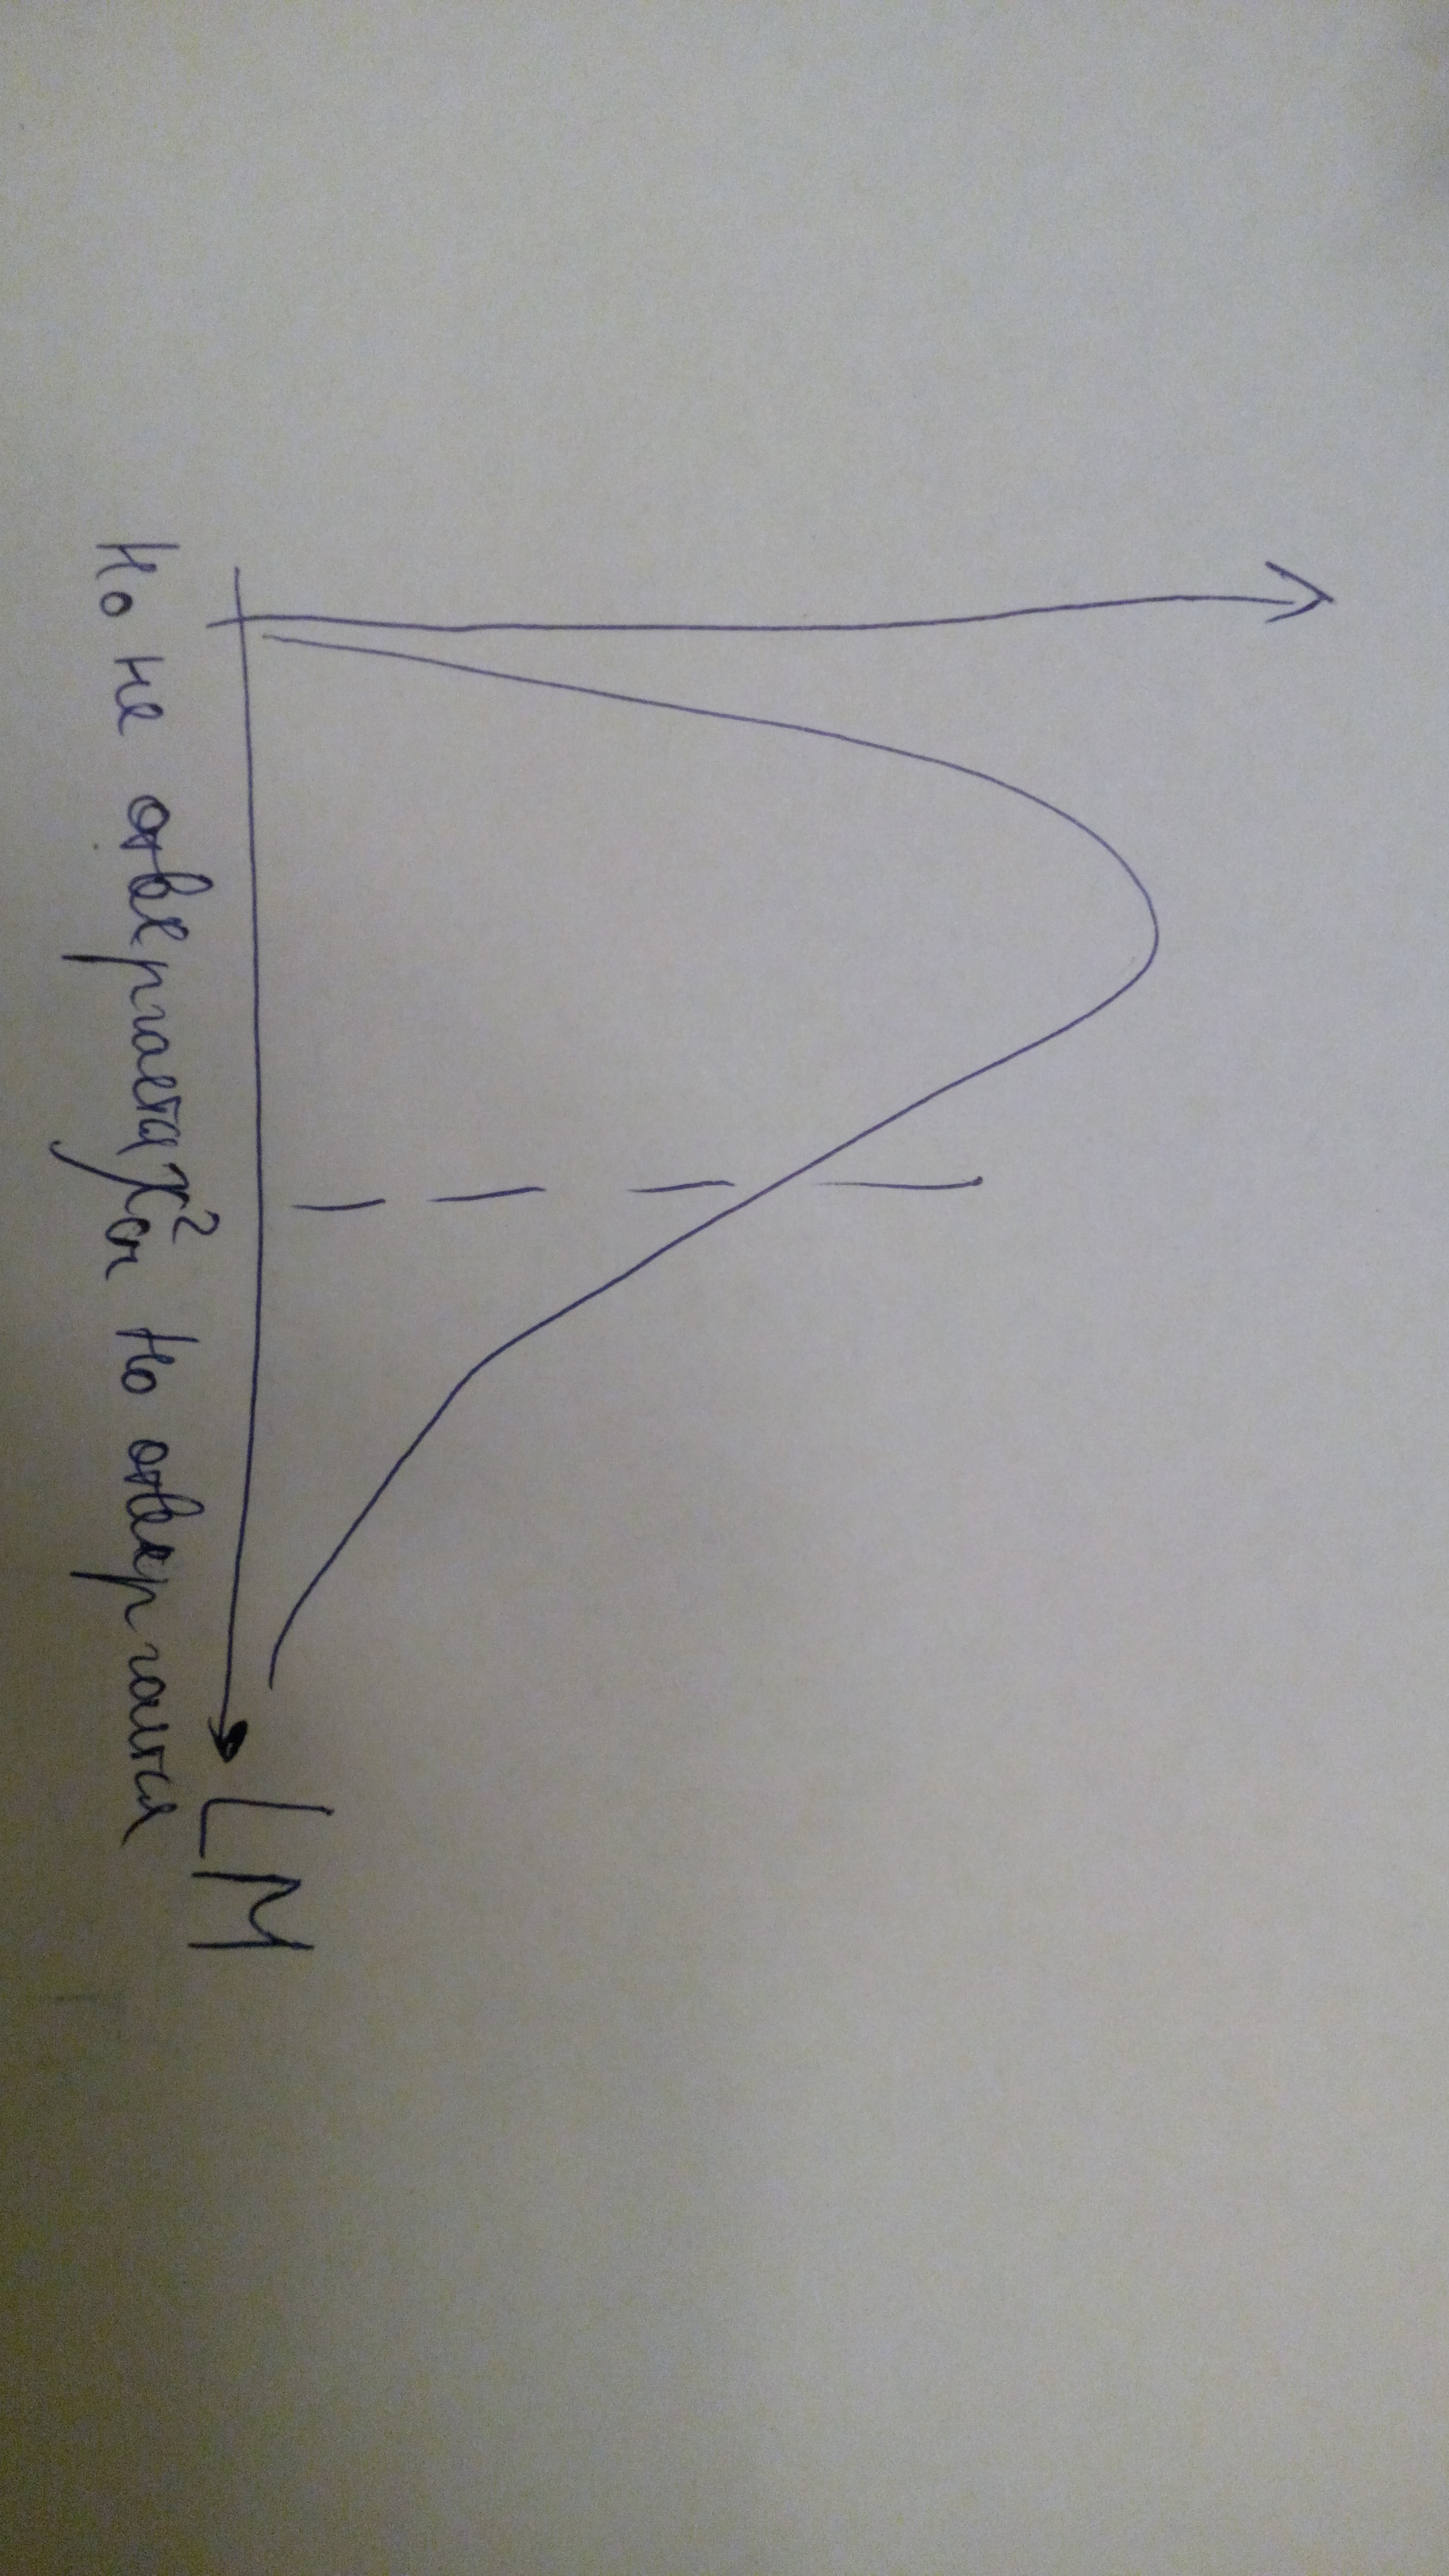 LM
H₀ не отвергается χ²cr H₀ отвергается